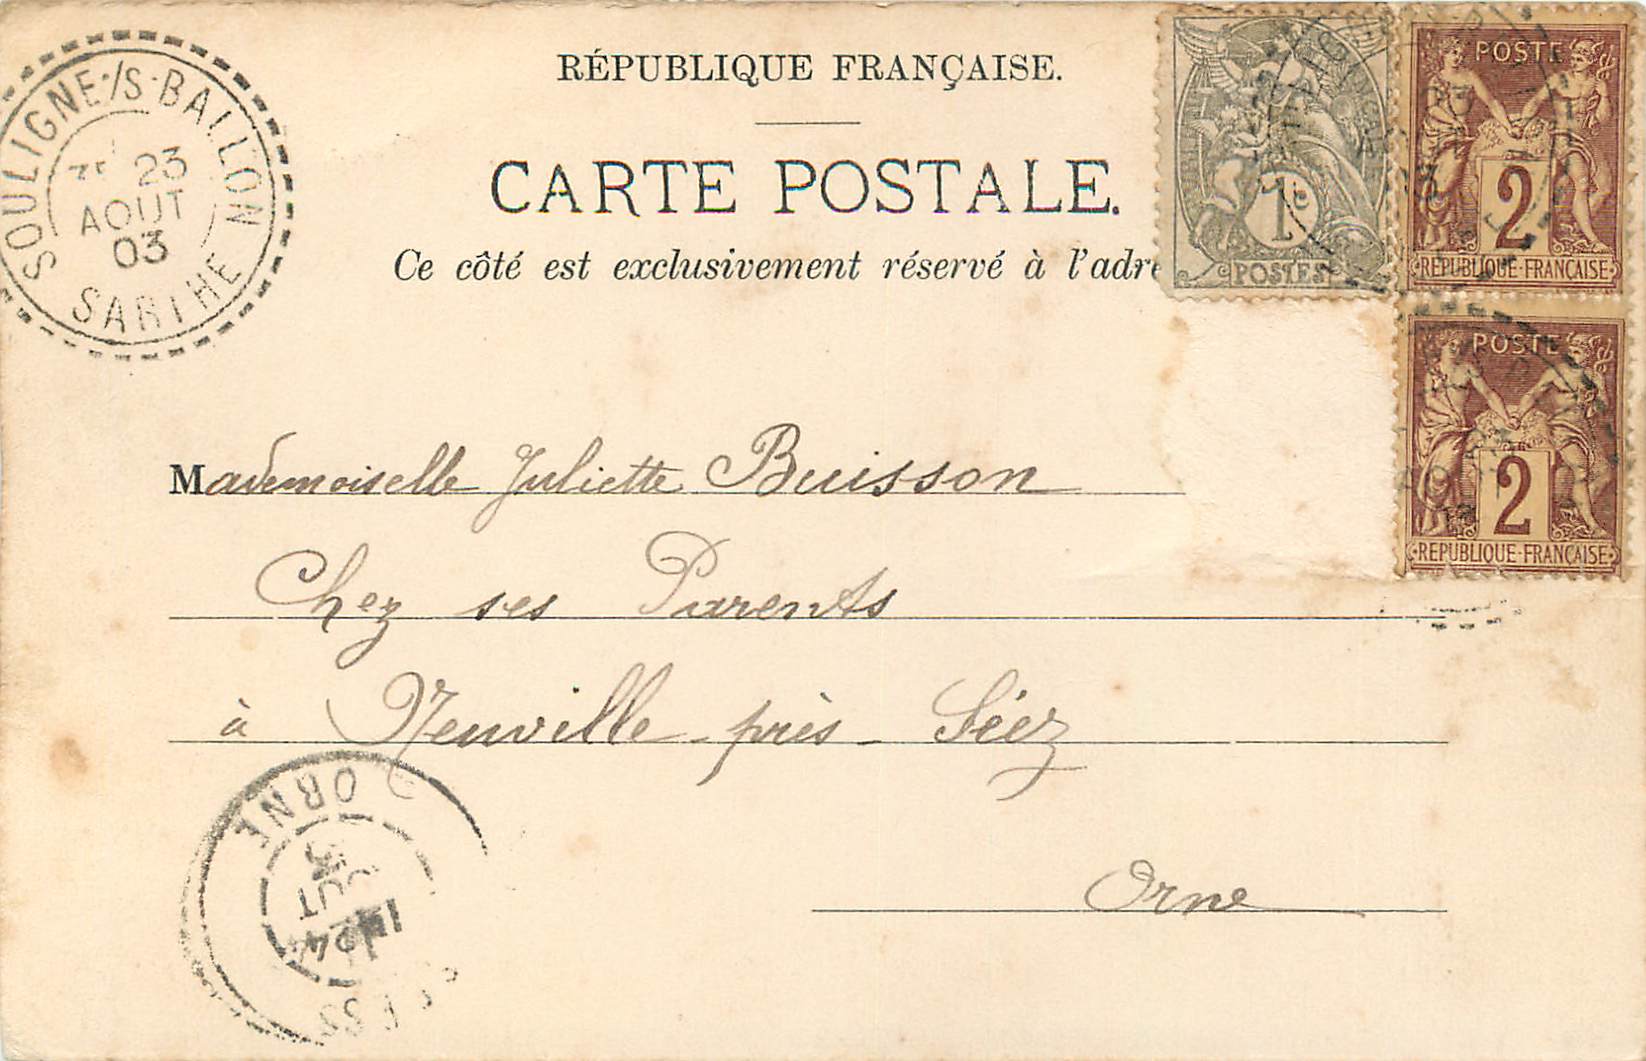 RÉPUBLIQUE FRANÇAISE.
CARTE POSTALE.
Ce côté est exclusivement réservé à l'adre
SOULIGNE-/S-BALLON
23
AOUT
03
SARTHE
1c
POSTES
POSTE
2
REPUBLIQUE·FRANÇAISE
POSTE
2
REPUBLIQUE·FRANÇAISE
Mademoiselle Juliette Buisson
Chez ses Parents
à Neuville - près - Séez
Orne
ORNE
24